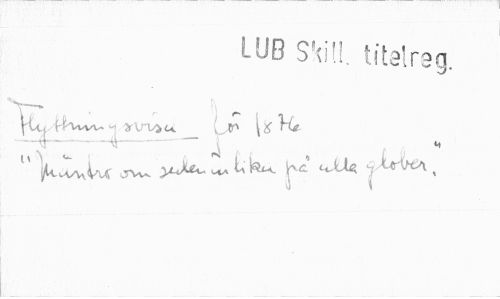 LUB Skill. titelreg.
Flyttningsvisa för 1876
"Mäntro om seder lika på alla glober."